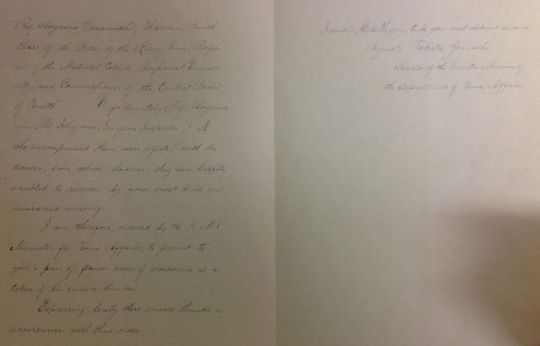 Prof. Aoyama Tanemichi, Third
Class of the Order of the Rising Sun, Profes-
sor of the Medical College, Imperial Univer-
sity, and Commissioner of the Central Board
of Health. Unfortunately Prof. Aoyama
and Mr. Ishigami, Surgeon I. J. N.
who accompanied them were infected with the
disease, from which, however, they were happily
enabled to recover by your most kind and
unwearied nursing.
I am, therefore, ordered by H. I. M's
Minister for Home Affairs, to present to
you a pair of flower vases of cloisonne as a
token of his sincere thanks.
Expressing hereby these sincere thanks in
accordance with that order
to be your most obedient servant
(Signed)
Director of the Sanitary Bureau of
the Department of Home Affairs